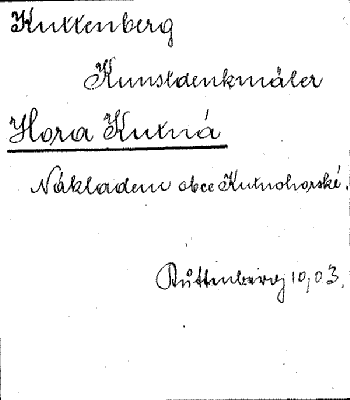 Kuttenberg
Kunstdenkmäler
Hora Kutná
Nákladem obce Kutnohorské.
Kuttenberg 1903.